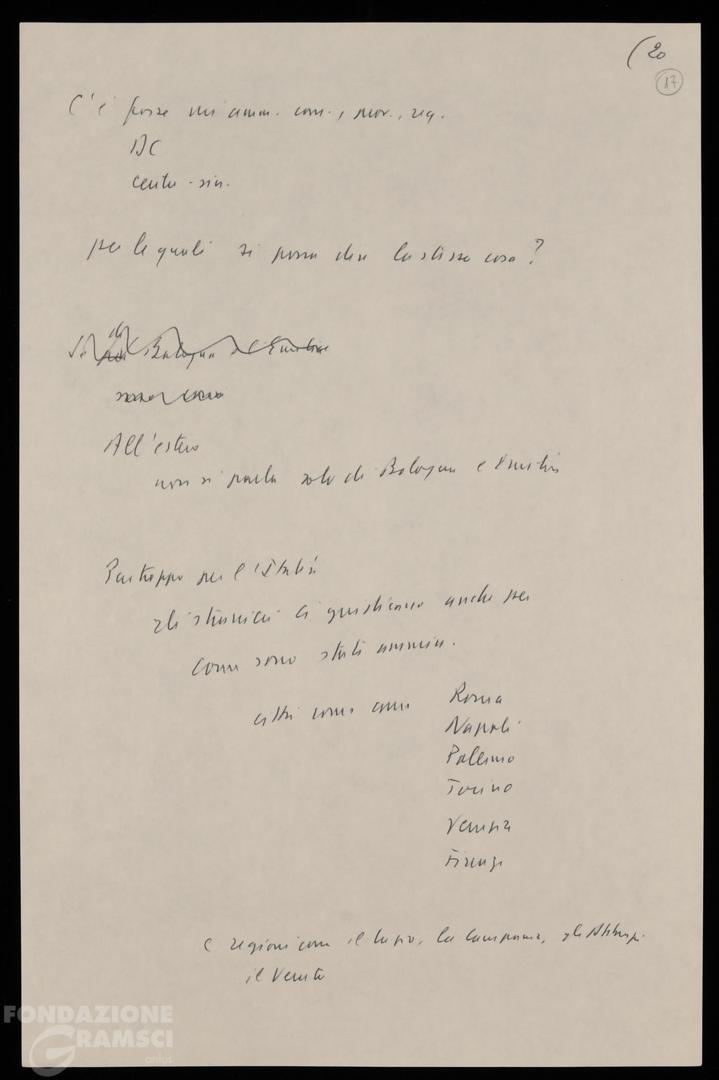 (20
17
C'è forse un'amm. com., prov., reg.
DC
centro-sin.
per le quali si possa dire la stessa cosa?
di Bologna e l'Emilia
All'estero
non si parla solo di Bologna e Emilia
Purtroppo per l'Italia
gli stranieri ci giudicano anche per
come sono state ammin.
città come come Roma
Napoli
Palermo
Torino
Venezia
Firenze
e regioni come il Lazio, la Campania, gli Abruzzi
il Veneto
FONDAZIONE
GRAMSCI
onlus